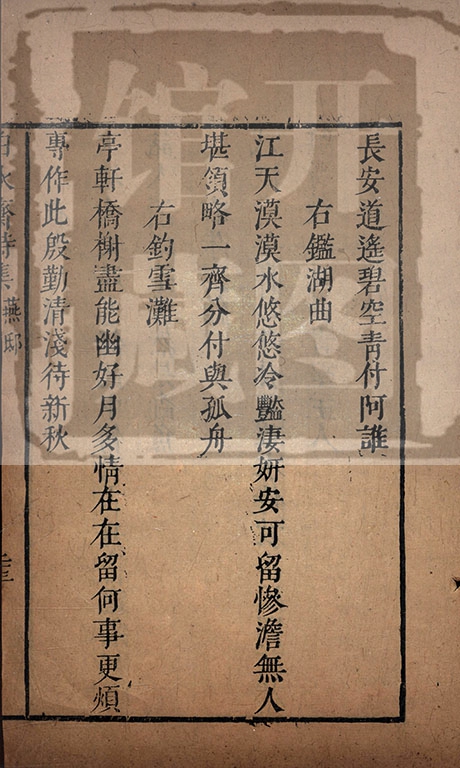 長安道遙碧空青付阿誰
右鑑湖曲
江天漠漠水悠悠冷艷淒妍安可留慘澹無人
堪領略一齊分付與孤舟
右釣雪灘
亭軒橋榭盡能幽好月多情在在留何事更煩
專作此殷勤清淺待新秋
白水齋詩集 燕邸